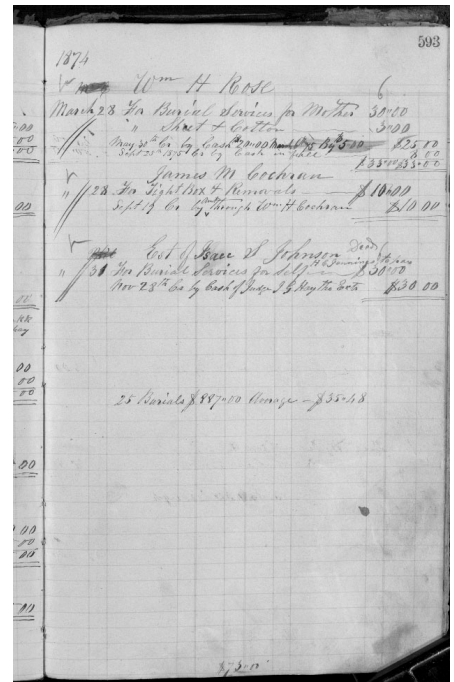 593
1874
Wm H Rose
March 28 For Burial Services for Mother 30.00
" Sheet & Cotton 3.00
May 30th Cr by Cash 20.00 5.00 $25.00
Sept 25th 1875 Cr by Cash in full 8.00
$33.00 $33.00
James M Cochran
" 28 For Tight Box & Removals — $10.00
Sept 19 Cr by through Wm H Cochran $10.00
Est of Isaac S Johnson Dead
H Jennings to pay
" 31 For Burial Services for Self — $30.00
Nov 28th Cr by Cash of Judge J G Exct $30.00
25 Burials $887.00 Average — $35.48